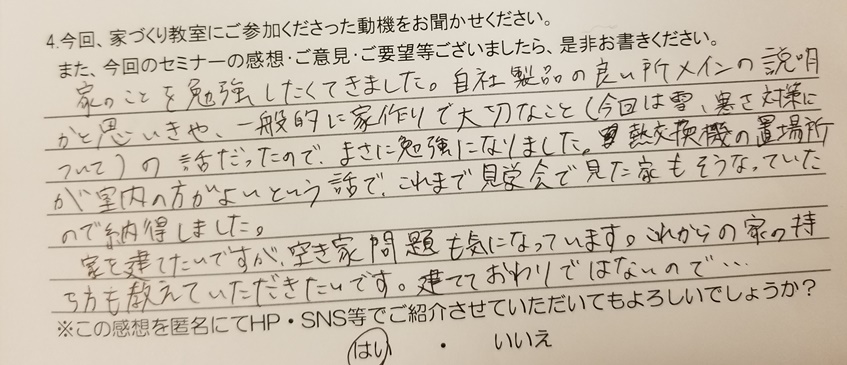 4.今回、家づくり教室にご参加くださった動機をお聞かせください。
また、今回のセミナーの感想・ご意見・ご要望等ございましたら、是非お書きください。
家のことを勉強したくてきました。自社製品の良い所メインの説明
かと思いきや、一般的に家作りで大切なこと(今回は雪、寒さ対策に
ついて)の話だったので、まさに勉強になりました。熱交換機の置場所
が室内の方がよいという話で、これまで見学会で見た家もそうなっていた
ので納得しました。
家を建てたいですが、空き家問題も気になっています。これからの家の持
ち方も教えていただきたいです。建てておわりではないので…
※この感想を匿名にてHP・SNS等でご紹介させていただいてもよろしいでしょうか?
はい ・ いいえ